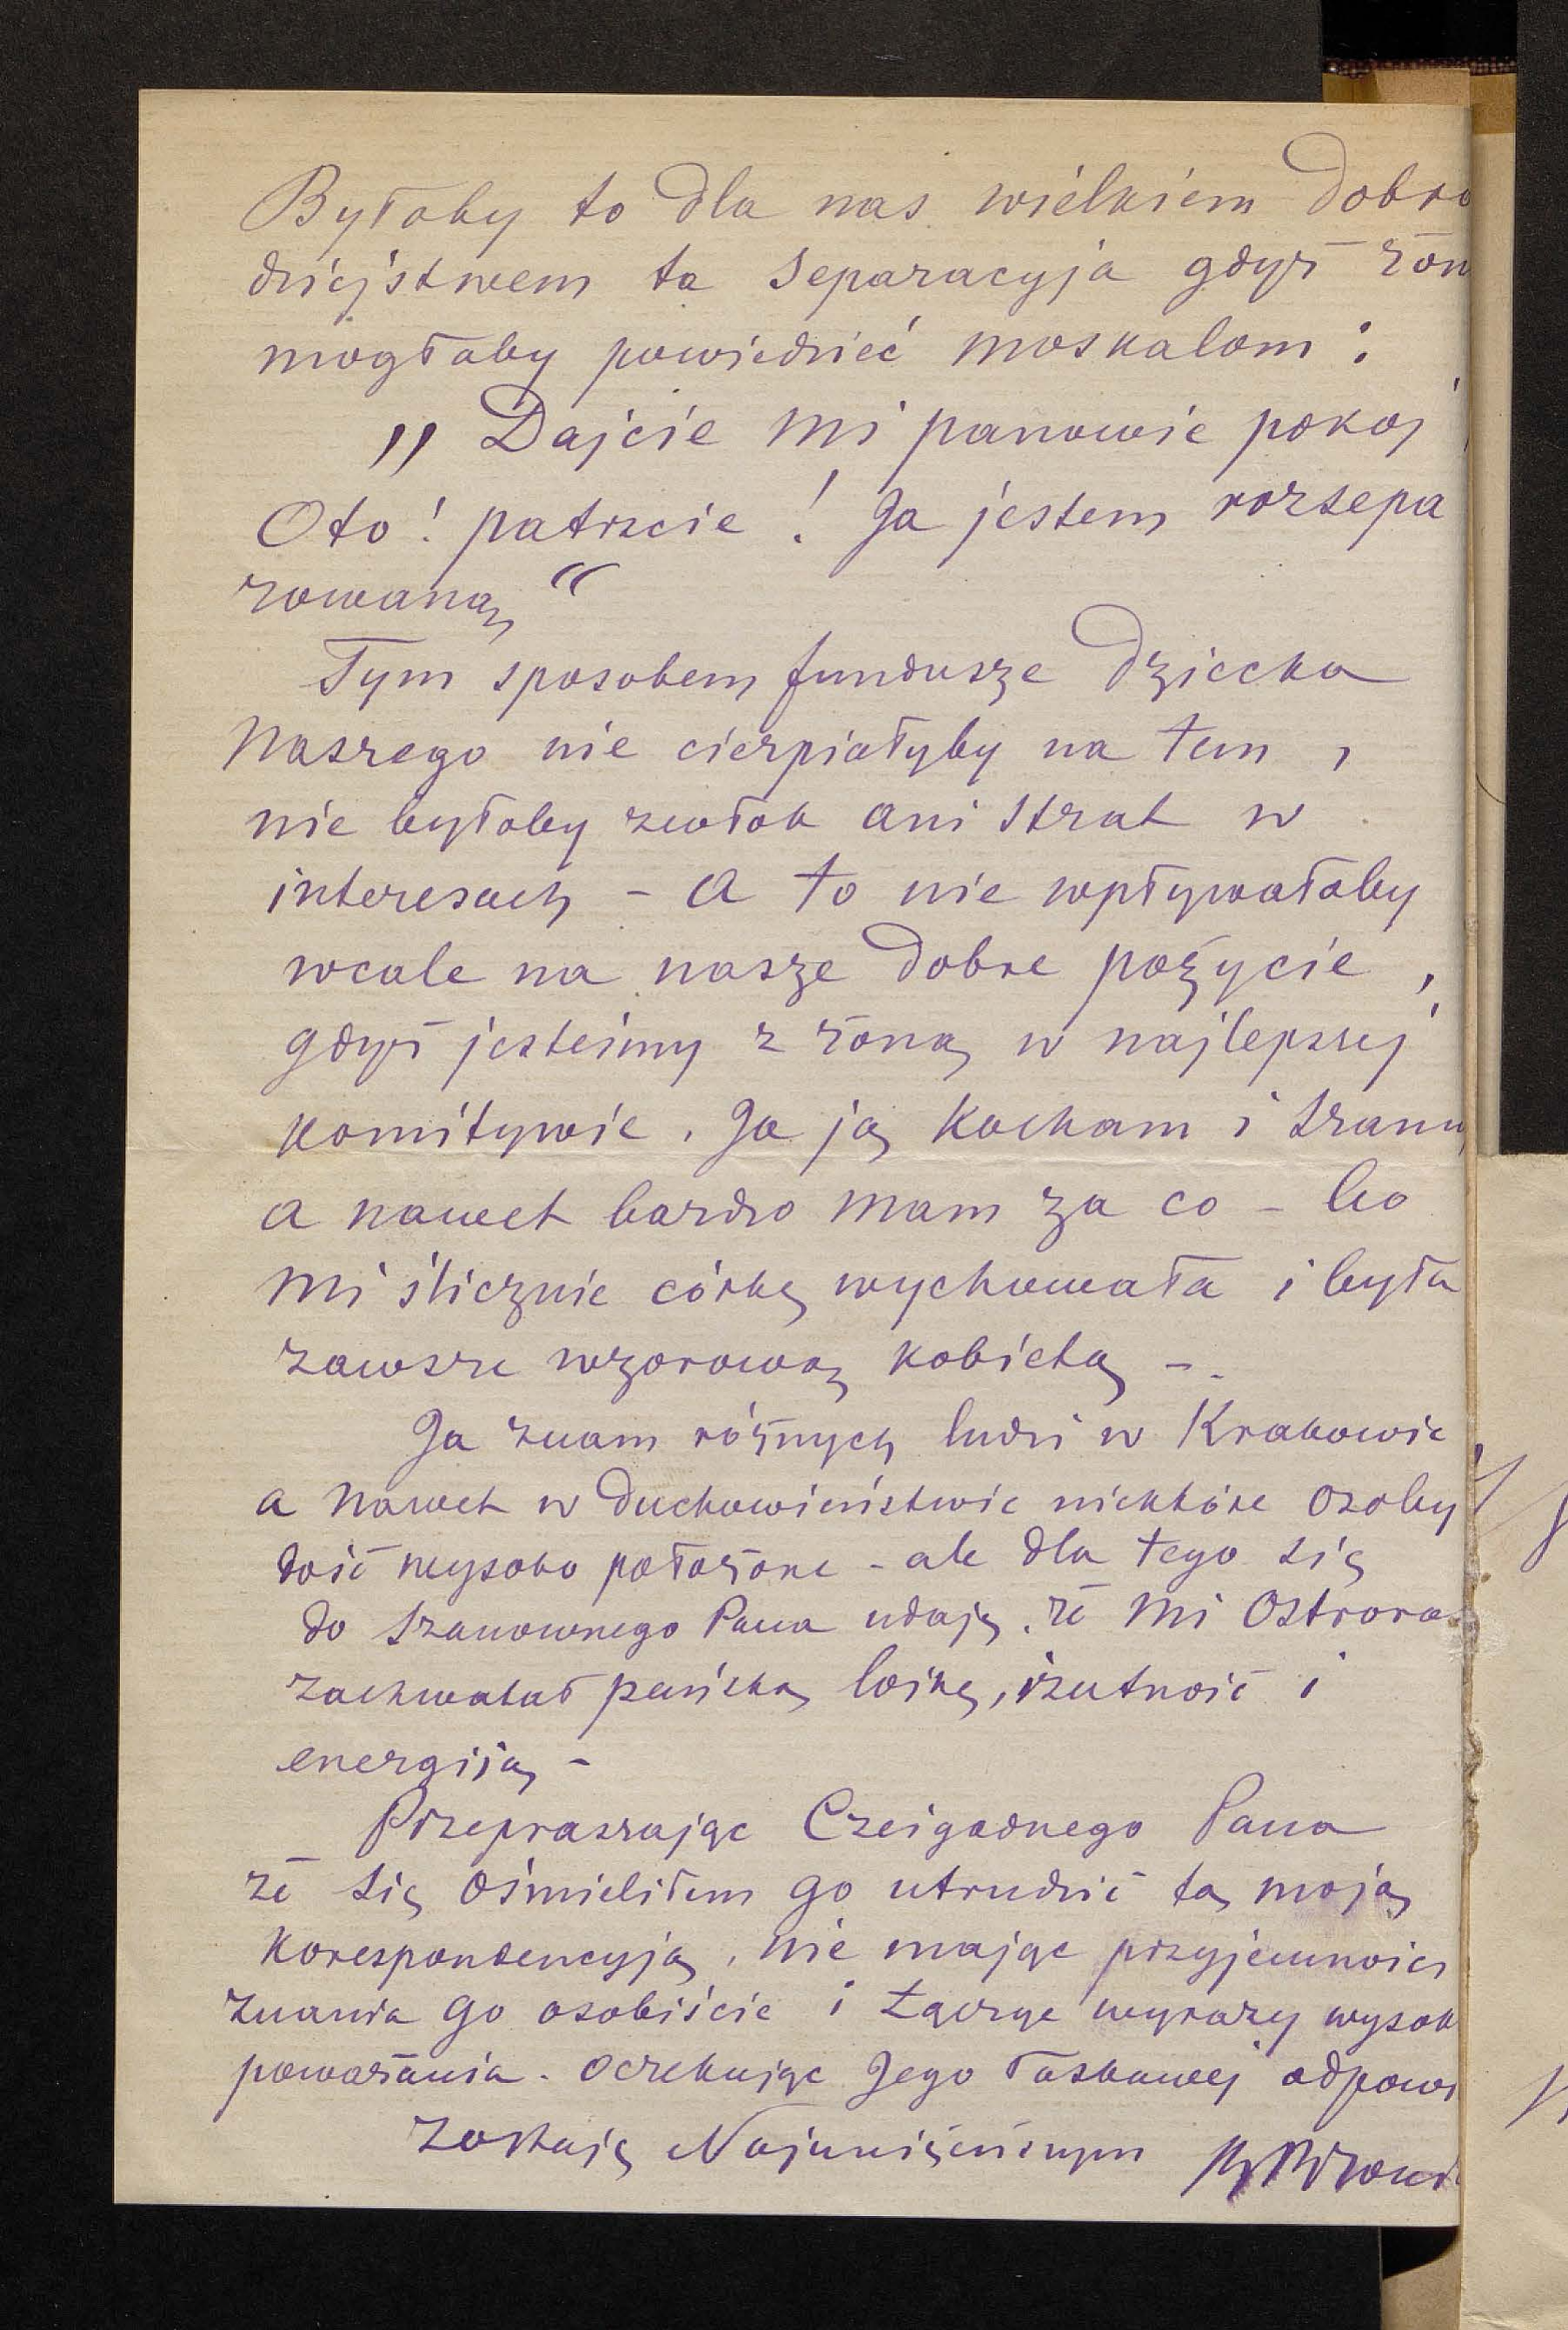 Byłoby to dla nas wielkiem dobro
dziejstwem ta separacyja gdyż żon
mogłaby powiedzieć moskalom:
„Dajcie mi panowie pokój
Oto! patrzcie! Ja jestem rozsepa
rowaną“
Tym sposobem fundusze dziecka
naszego nie cierpiałyby na tem,
nie byłoby zwłok ani strat w
interesach – a to nie wpływałoby
wcale na nasze dobre pożycie,
gdyż jesteśmy z żoną w najlepszej
komitywie. Ja ją kocham i szanu
a nawet bardzo mam za co – bo
mi ślicznie córkę wychowała i była
zawsze wzorową kobietą –.
Ja znam różnych ludzi w Krakowie
a nawet w duchowieństwie niektóre osoby
dość wysoko położone – ale dla tego się
do szanownego Pana udaję, że mi Ostroro
zachwalał pańską loikę, rzutność i
energiją –
Przepraszając Czcigodnego Pana
że się ośmieliłem go utrudnić tą moją
korespondencyją, nie mając przyjemności
znania go osobiście i łącząc wyrazy wysok
poważania. oczekując Jego łaskawej odpowi
zostaję Najuniżeńszym